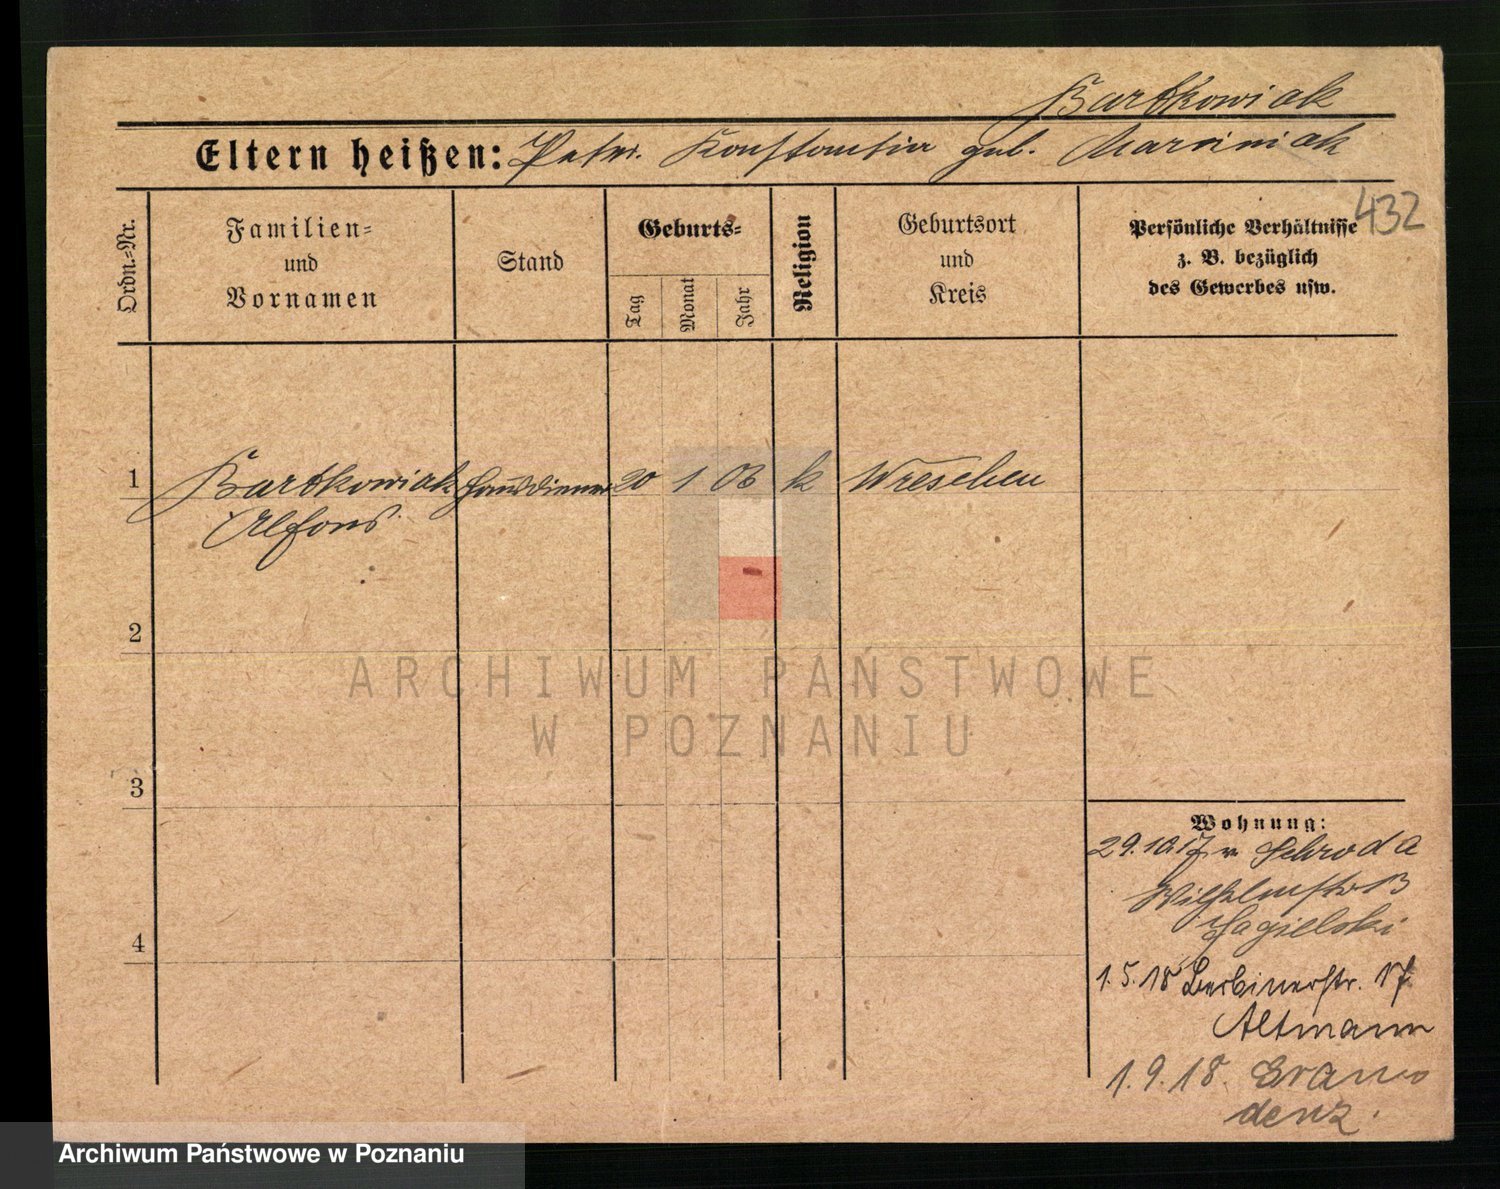 Bartkowiak
Eltern heißen: Peter. Konstantia geb. Marciniak
432
Ordn.-Nr.
Familien-
und
Vornamen
Stand
Geburts-
Tag
Monat
Jahr
Religion
Geburtsort
und
Kreis
Persönliche Verhältnisse
z. B. bezüglich
des Gewerbes usw.
1 Bartkowiak Hausdiener 20 1 03 k Wreschen
Alfons
2
3
4
Wohnung:
29.10.17 v Schroda
Wilhelmstr
Jagielski
1.5.18 Berlinerstr. 17
Altmann
1.9.18. Grau
denz.
ARCHIWUM PAŃSTWOWE
W POZNANIU
Archiwum Państwowe w Poznaniu